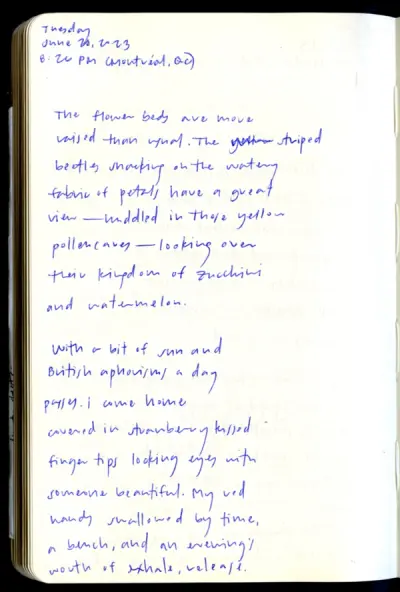 Tuesday
June 20, 2023
8:26 PM (Montréal, QC)
The flower beds are more
raised than usual. The yellow striped
beetles snacking on the watery
fabric of petals have a great
view — huddled in those yellow
pollen caves — looking over
their kingdom of zucchini
and watermelon.
With a bit of sun and
British aphorisms a day
passes. i come home
covered in strawberry kissed
finger tips locking eyes with
someone beautiful. My red
hands swallowed by time,
a bench, and an evening's
worth of exhale, release.